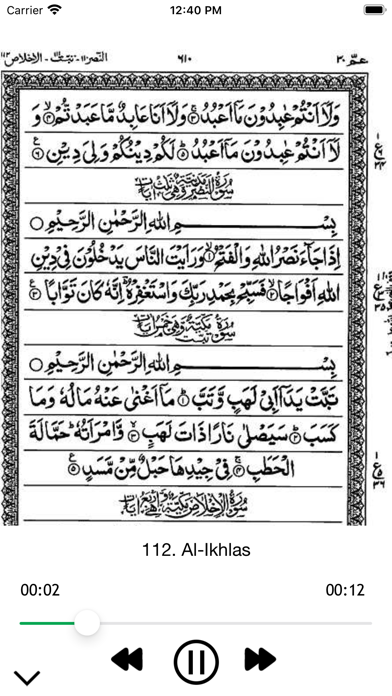 Carrier 12:40 PM
النصر ١١٠ تبت ١١١ الاخلاص ١١٢ ٦١٠ عم ٣٠
وَلَآ اَنْتُمْ عٰبِدُوْنَ مَآ اَعْبُدُ ۚ﴿۳﴾ وَلَآ اَنَا عَابِدٌ مَّا عَبَدْتُّمْ ۙ﴿۴﴾ وَ
لَآ اَنْتُمْ عٰبِدُوْنَ مَآ اَعْبُدُ ؕ﴿۵﴾ لَكُمْ دِيْنُكُمْ وَلِىَ دِيْنِ ﴿۶﴾
سُوْرَةُ النَّصْرِ مَدَنِيَّةٌ وَّهِىَ ثَلٰثُ اٰيَاتٍ
بِسْمِ اللهِ الرَّحْمٰنِ الرَّحِيْمِ
اِذَا جَآءَ نَصْرُ اللهِ وَالْفَتْحُ ۙ﴿۱﴾ وَرَاَيْتَ النَّاسَ يَدْخُلُوْنَ فِىْ دِيْنِ
اللهِ اَفْوَاجًا ۙ﴿۲﴾ فَسَبِّحْ بِحَمْدِ رَبِّكَ وَاسْتَغْفِرْهُ ؔؕ اِنَّهٗ كَانَ تَوَّابًا ﴿۳﴾
سُوْرَةُ تَبَّتْ مَكِّيَّةٌ وَّهِىَ خَمْسُ اٰيَاتٍ
بِسْمِ اللهِ الرَّحْمٰنِ الرَّحِيْمِ
تَبَّتْ يَدَآ اَبِىْ لَهَبٍ وَّتَبَّ ؕ﴿۱﴾ مَآ اَغْنٰى عَنْهُ مَالُهٗ وَمَا
كَسَبَ ؕ﴿۲﴾ سَيَصْلٰى نَارًا ذَاتَ لَهَبٍ ۚۖ﴿۳﴾ وَّامْرَاَتُهٗ ؕ حَمَّالَةَ
الْحَطَبِ ۚ﴿۴﴾ فِىْ جِيْدِهَا حَبْلٌ مِّنْ مَّسَدٍ ﴿۵﴾
سُوْرَةُ الْاِخْلَاصِ مَكِّيَّةٌ وَّهِىَ اَرْبَعُ اٰيَاتٍ
112. Al-Ikhlas
00:02 00:12